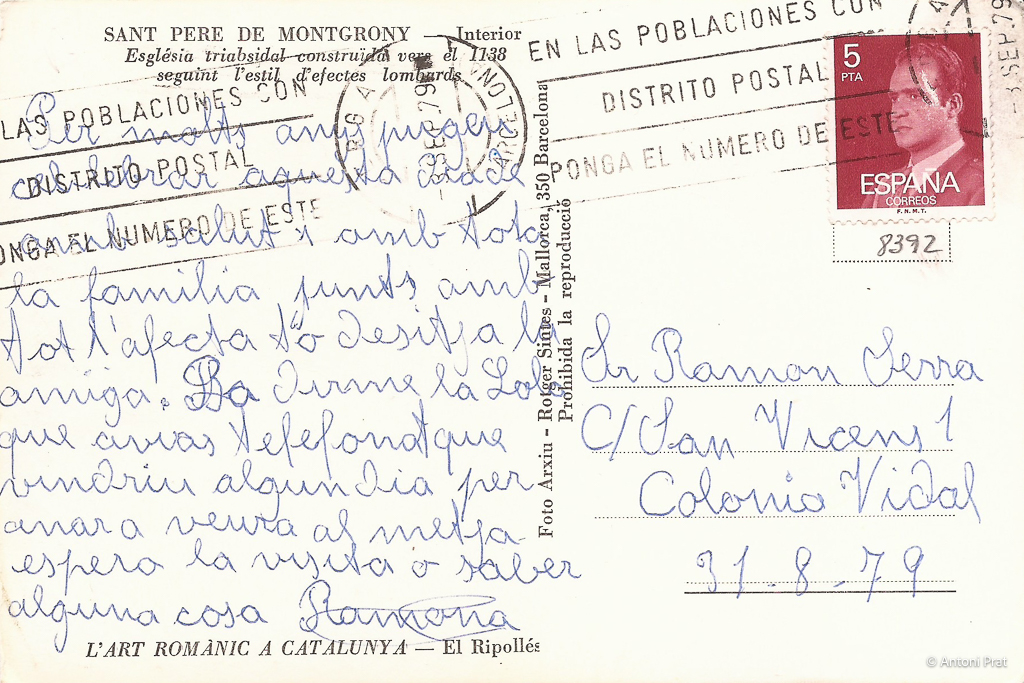 SANT PERE DE MONTGRONY — Interior
Església triabsidal construïda vers el 1138
seguint l'estil d'efectes lombards
Per molts anys puguen
cel·lebrar aquesta diade
amb salut i amb tota
la familia junts amb
tot l'afecta t'ò desitja la
amiga. La Lola
que avias telefonat que
vindriu algun dia per
anar a veura al metja
espero la visita ò saber
alguna cosa Ramona
L'ART ROMÀNIC A CATALUNYA — El Ripollés
Foto Arxiu - Rotger Sintes - Mallorca, 350 Barcelona
Prohibida la reproducció
LAS POBLACIONES CON
DISTRITO POSTAL
ONGA EL NUMERO DE ESTE
EN LAS POBLACIONES CON
DISTRITO POSTAL
PONGA EL NUMERO DE ESTE
5
PTA
ESPAÑA
CORREOS
F.N.M.T.
8392
Sr Ramon Serra
C/ San Vicens 1
Colonia Vidal
31-8-79
© Antoni Prat